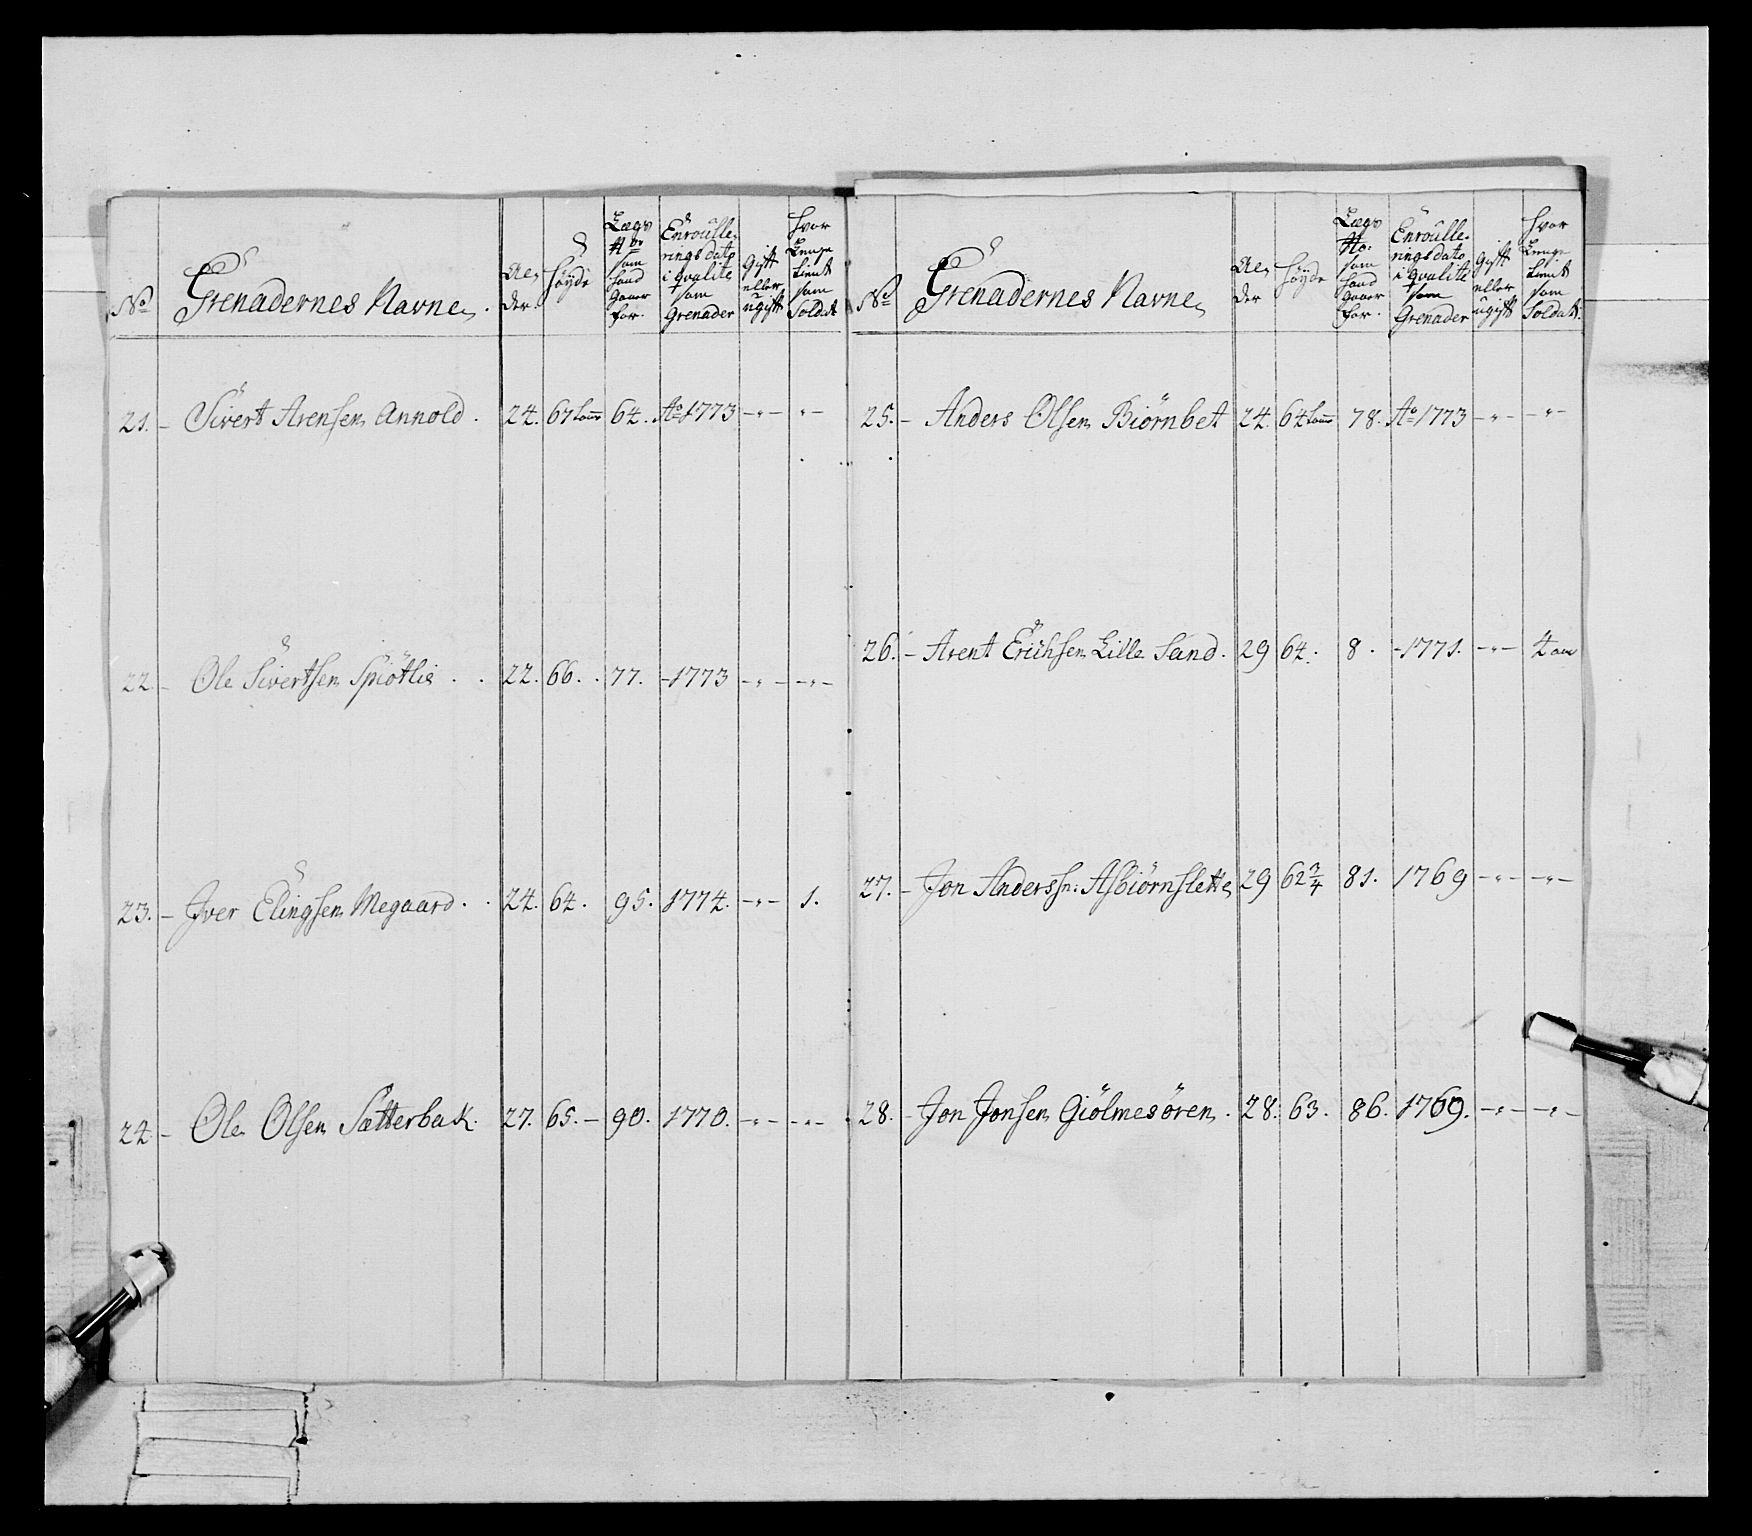 No
Grenadernes Navne.
Al,
der.
Høyde
Lægs
No
som
hand
gaaer
for.
Enroulle,
rings dato
i qvalite
som
Grenader
Gift
eller
ugift
Hvor
Lenge
tient
som
Soldat
21. – Sivert Arensen Annold. 24. 67 tom 64. Ao 1773 –"– "–
22 – Ole Sivertsen Spiötlie . . 22. 66. . 77. – 1773 –"– –"–
23. – Iver Elingsen Megaard. . 24. 64. 95. 1774. –"– 1.
24 – Ole Olsen Sætterbak. 27. 65. – 90. 1770. –"– –"–
No
Grenadernes Navne
Al,
der
Høyde
Lægs
No:
som
hand
gaaer
for.
Enroulle,
rings dato
i qvalite
som
Grenader
Gift
eller
ugift
Hvor
Lenge
tient
som
Soldat:
25. – Anders Olsen Biörnbet 24. 64 tom 78. Ao 1773 –"– –"–
26. – Arent Erichsen Lille Sand. 29 64. 8. – 1771. –"– 4
27. – Jon Anderssn: Asbiörnslette 29 62 3/4 81. 1769 –"– –"–
28. – Jon Jonsen Giölmesören. 28. 63. 86. 1769. –"– –"–